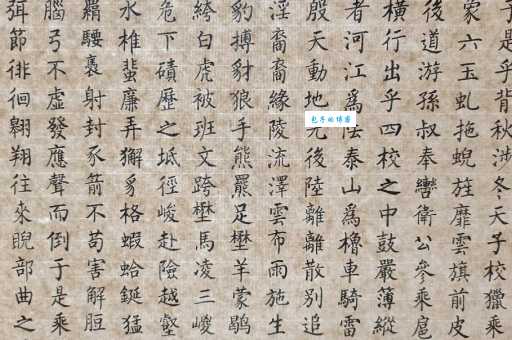 于是乎背秋涉冬天子校獵乘
象六玉虬拖蜺旌靡雲旗前皮
後道游孫叔奉轡衛公參乘扈
橫行出乎四校之中鼓嚴簿縱
者河江爲阹泰山爲櫓車騎雷
殷天動地後陸離離散別追
淫裔裔緣陵流澤雲布雨施生
豹搏豺狼手熊羆足壄羊蒙鶡
絝白虎被班文跨壄馬凌三嵕
危下磧歷之坻徑峻赴險越壑
水椎蜚廉弄獬豸格蝦蛤鋋猛
羂騕褭射封豕箭不苟害解脰
腦弓不虛發應聲而倒于是乘
弭節徘徊翱翔往來睨部曲之